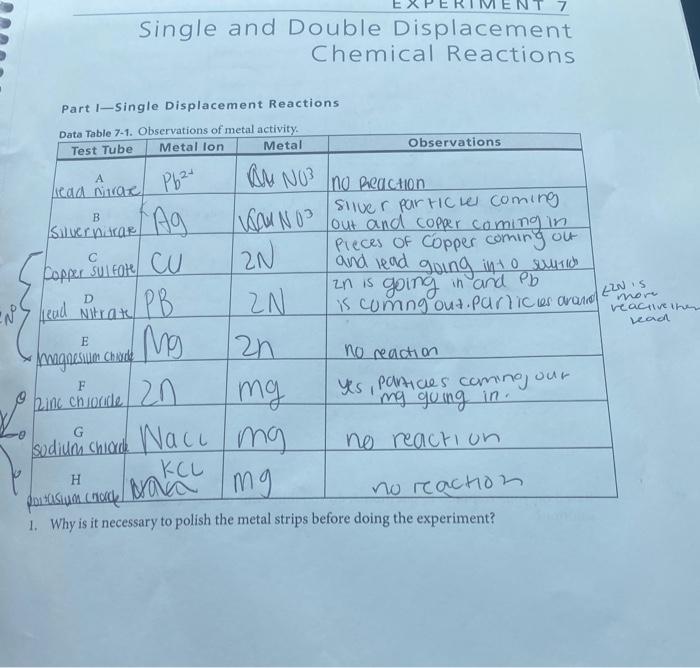 EXPERIMENT 7
Single and Double Displacement
Chemical Reactions
Part I—Single Displacement Reactions
Data Table 7-1. Observations of metal activity.
Test Tube Metal Ion Metal Observations
A
lead nitrate Pb²⁺ NO3 no reaction
B
Silver nitrate Ag NO3 silver particles coming
out and copper coming in
C
Copper sulfate CU ZN Pieces of Copper coming out
and lead going into
D
lead Nitrate PB ZN zn is going in and Pb
is coming out. particles around
ZN is
more
reactive than
lead
E
magnesium Mg zn no reaction
F
zinc chloride Zn mg yes, particles coming out
mg going in.
G
sodium Nacl mg no reaction
H
KCL mg no reaction
1. Why is it necessary to polish the metal strips before doing the experiment?